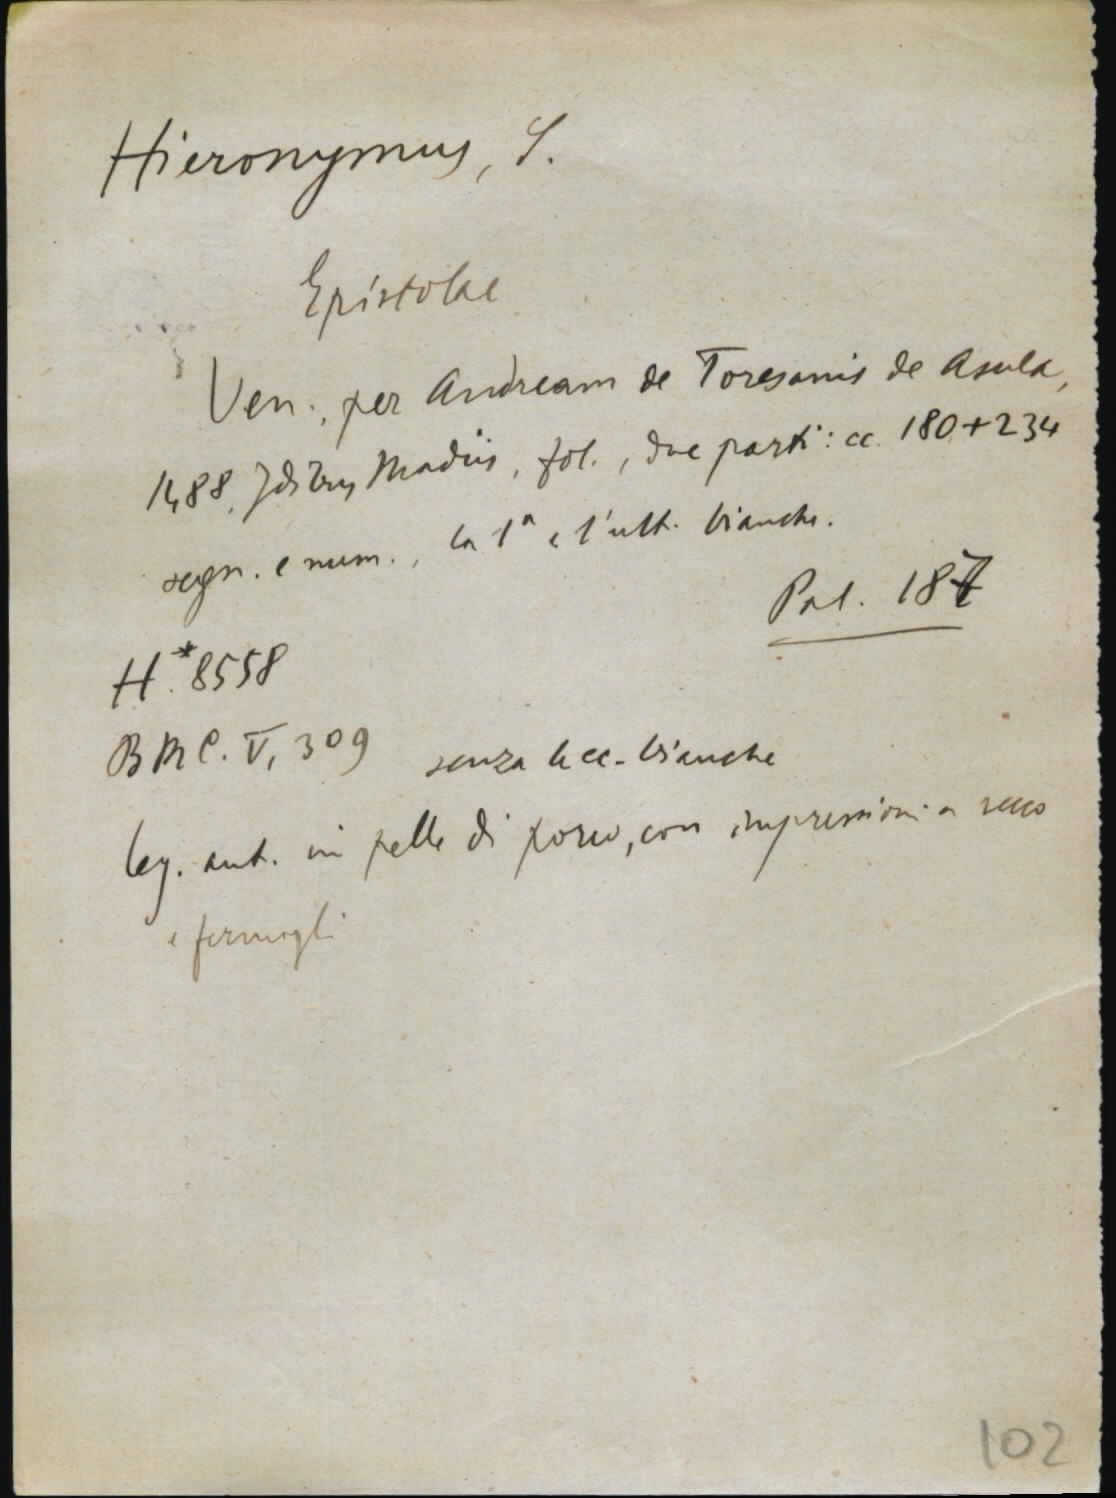 Hieronymus, S.
Epistolae
Ven., per Andream de Toresanis de Asula,
1488, Idibus Madiis, fol., due parti: cc. 180+234
segn. e num., la 1ª e l'ult. bianche.
Pal. 187
H.*8558
BMC. V, 309 senza le cc. bianche
leg. ant. in pelle di porco, con impressioni a secco
e fermagli
102